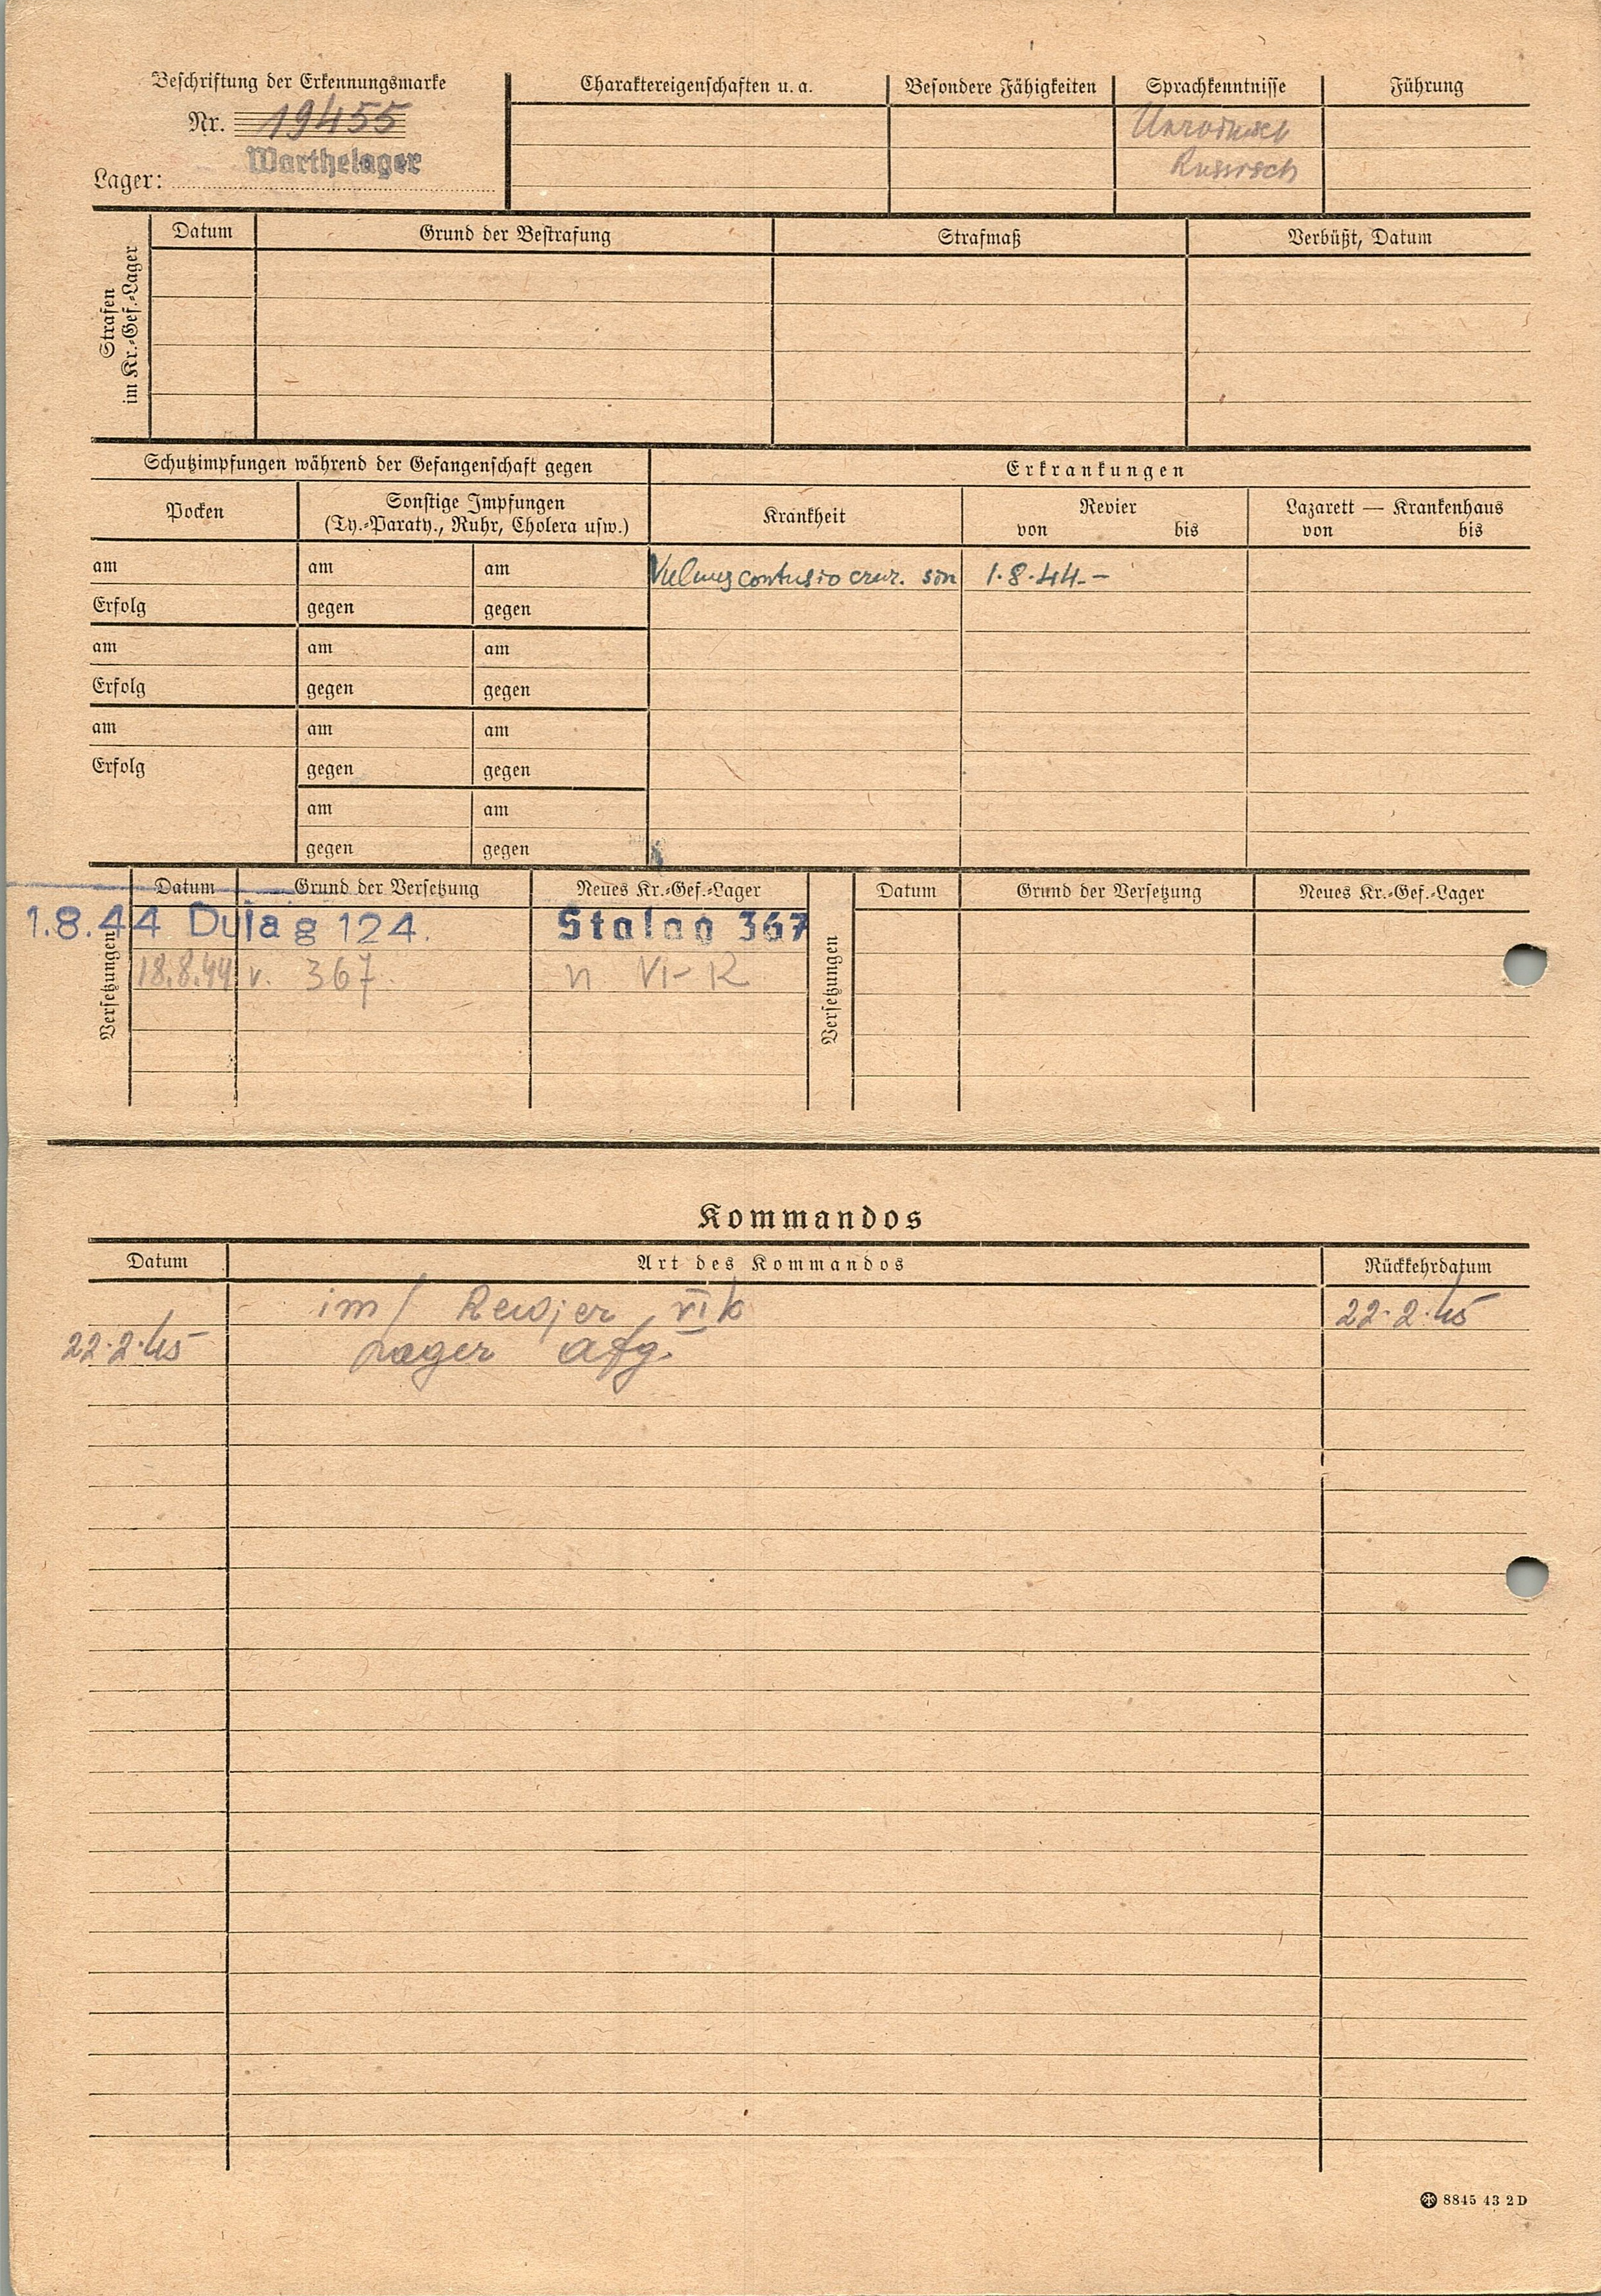 Beschriftung der Erkennungsmarke
Nr. 19455
Warthelager
Lager:
Charaktereigenschaften u. a.
Besondere Fähigkeiten
Sprachkenntnisse
Führung
Russisch
Strafen
im Kr.-Gef.-Lager
Datum
Grund der Bestrafung
Strafmaß
Verbüßt, Datum
Schutzimpfungen während der Gefangenschaft gegen
Pocken
Sonstige Impfungen
(Ty.-Paraty., Ruhr, Cholera usw.)
am am am
Erfolg gegen gegen
am am am
Erfolg gegen gegen
am am am
Erfolg gegen gegen
am am
gegen gegen
Erkrankungen
Krankheit
Revier
von bis
Lazarett — Krankenhaus
von bis
Vulnus contusio crur. sin 1.8.44.–
Versetzungen
Datum Grund der Versetzung Neues Kr.-Gef.-Lager
1.8.44 Dulag 124. Stalag 367
18.8.44 v. 367 n VI-K
Versetzungen
Datum Grund der Versetzung Neues Kr.-Gef.-Lager
Kommandos
Datum Art des Kommandos Rückkehrdatum
im Rewjer VI k 22.2.45
22.2.45 Lager
8845 43 2 D